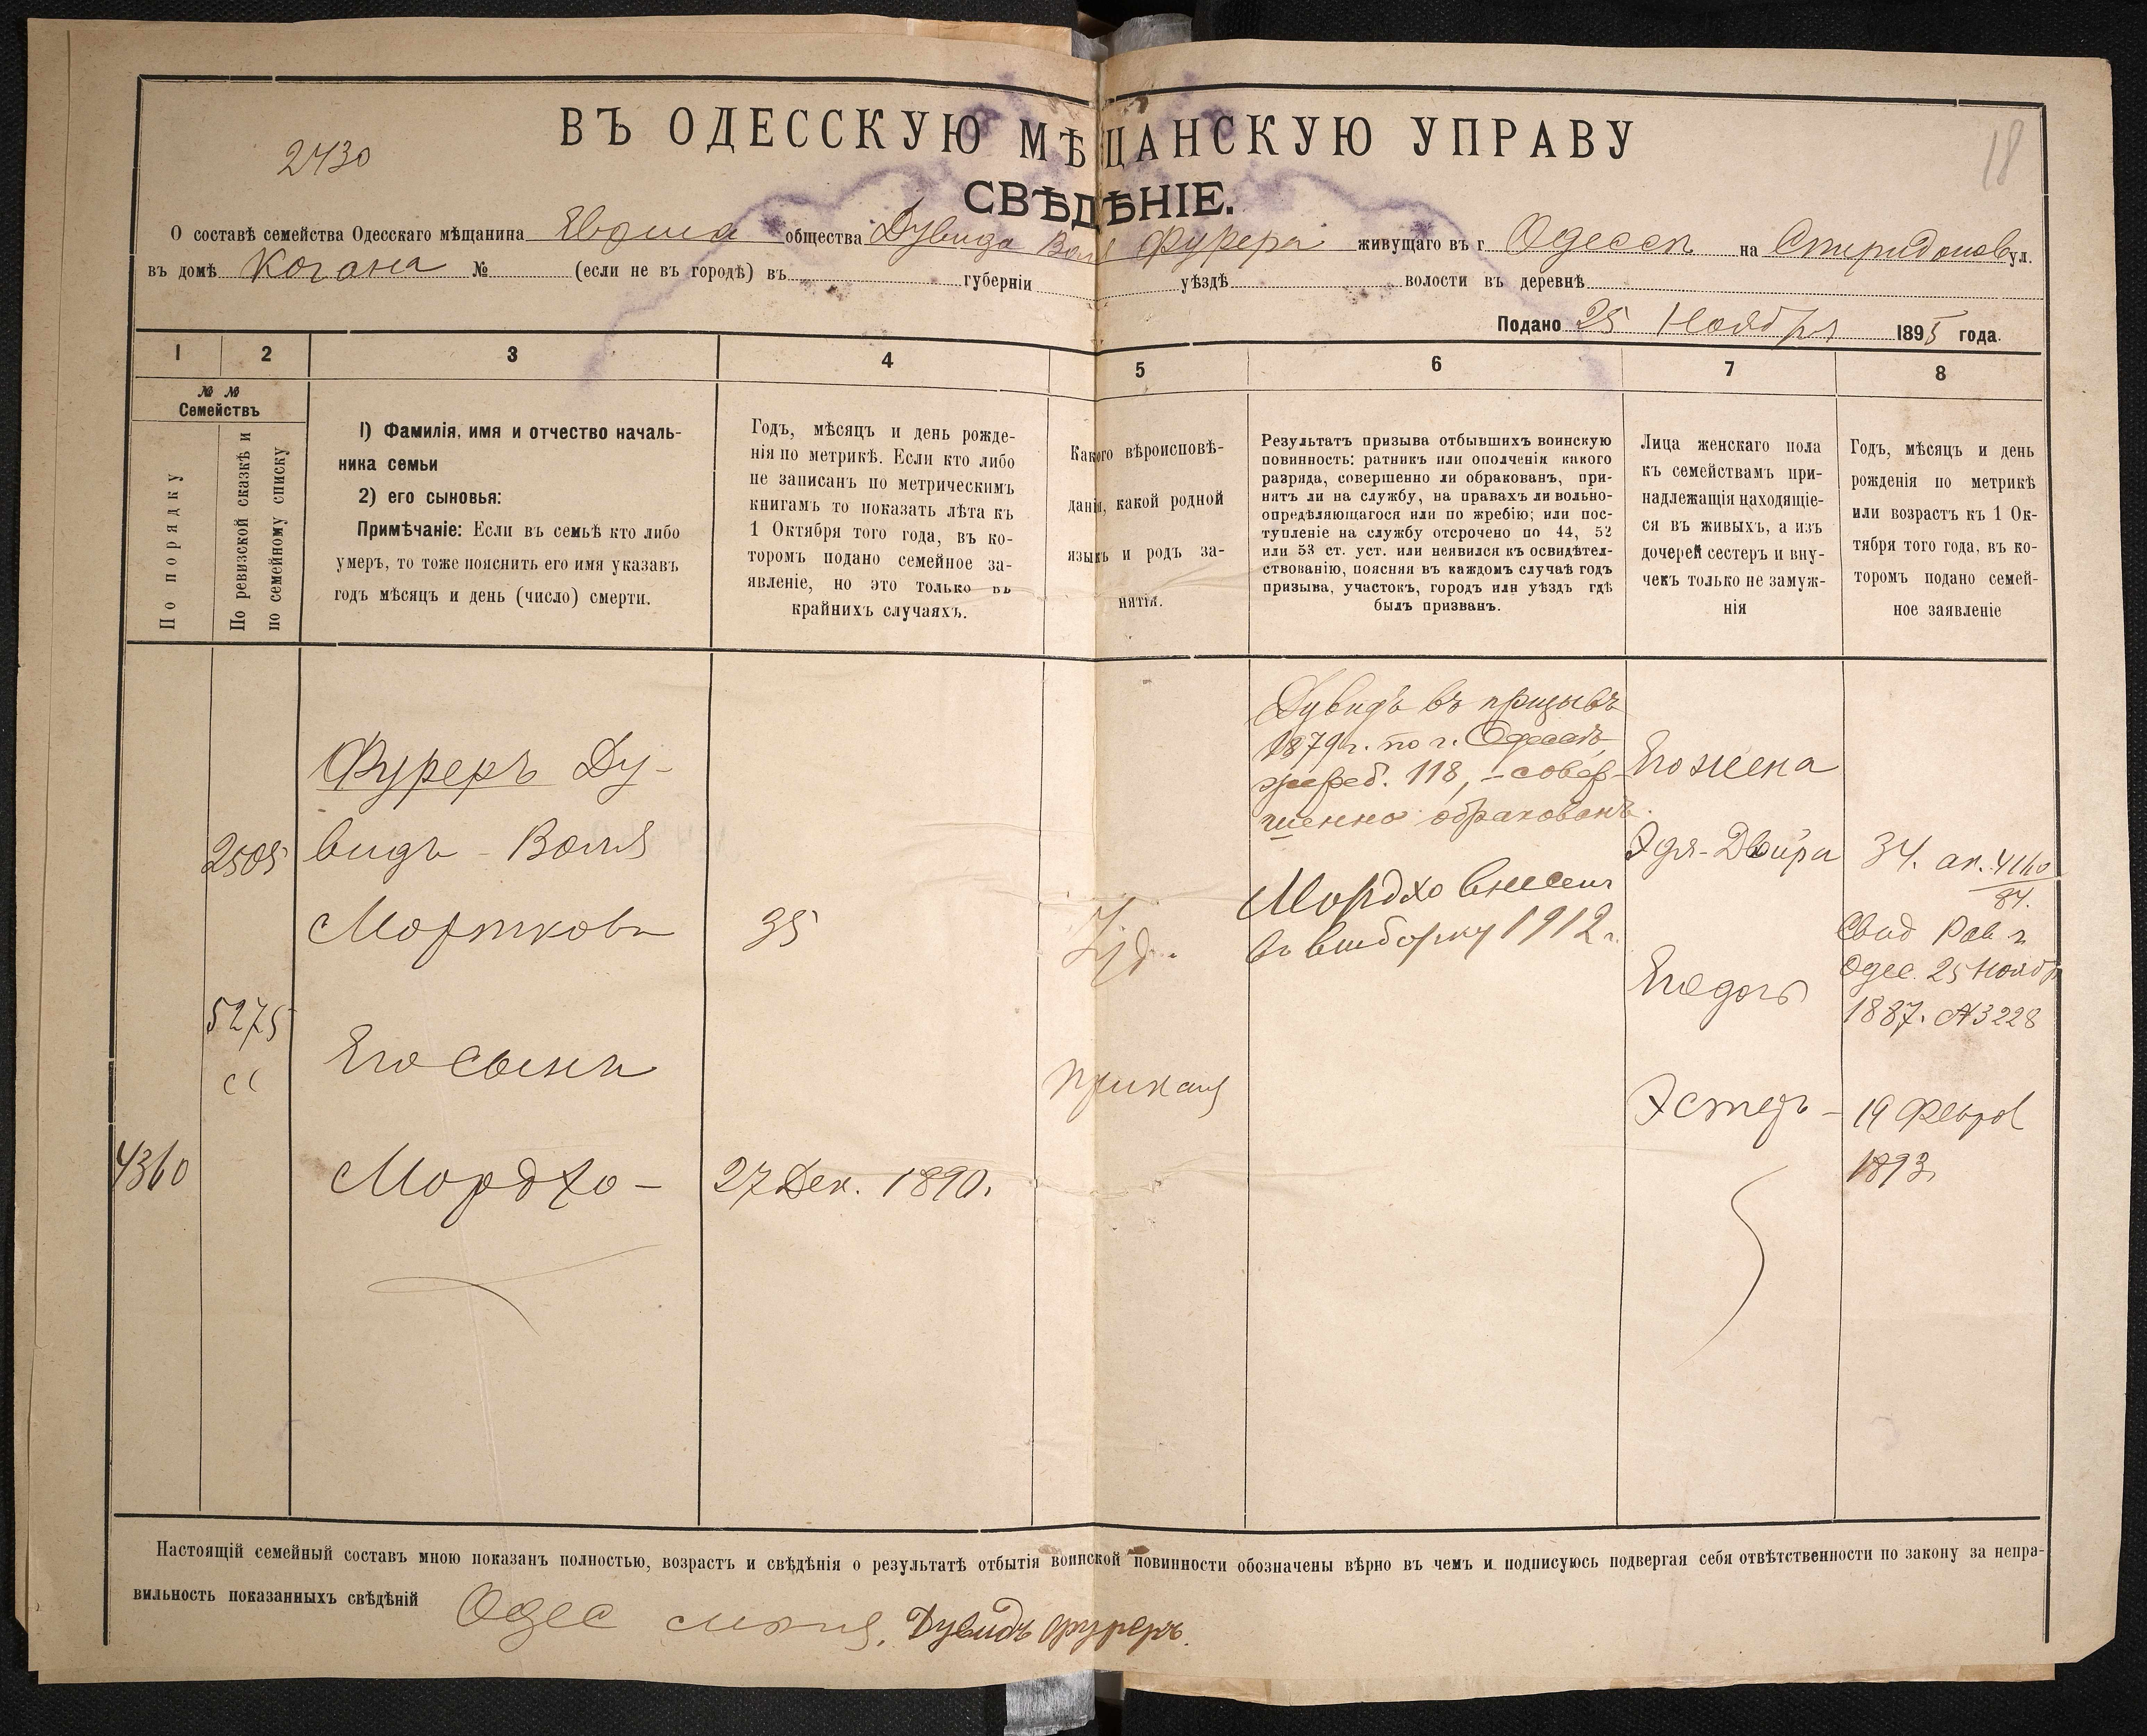 ВЪ ОДЕССКУЮ МѢЩАНСКУЮ УПРАВУ
2430
18
СВѢДѢНІЕ.
О составѣ семейства Одесскаго мѣщанина общества Дувида Вол Фурера живущаго въ г Одессѣ на Спиридонов ул.
въ домѣ Когана № (если не въ городѣ) въ губерніи уѣздѣ волости въ деревнѣ
Подано 25 Ноября 1895 года.
1 2 3 4 5 6 7 8
№ №
Семействъ
По порядку
По ревизской сказкѣ и
по семейному списку
1) Фамилія, имя и отчество началь-
ника семьи
2) его сыновья:
Примѣчаніе: Если въ семьѣ кто либо
умеръ, то тоже пояснить его имя указавъ
годъ мѣсяцъ и день (число) смерти.
Годъ, мѣсяцъ и день рожде-
нія по метрикѣ. Если кто либо
не записанъ по метрическимъ
книгамъ то показать лѣта къ
1 Октября того года, въ ко-
торомъ подано семейное за-
явленіе, но это только въ
крайнихъ случаяхъ.
Какого вѣроисповѣ-
данія, какой родной
языкъ и родъ за-
нятія.
Результатъ призыва отбывшихъ воинскую
повинность: ратникъ или ополченія какого
разряда, совершенно ли обракованъ, при-
нятъ ли на службу, на правахъ ли вольно-
опредѣляющагося или по жребію; или пос-
тупленіе на службу отсрочено по 44, 52
или 53 ст. уст. или неявился къ освидѣтел-
ствованію, поясняя въ каждомъ случаѣ годъ
призыва, участокъ, городъ или уѣздъ гдѣ
былъ призванъ.
Лица женскаго пола
къ семействамъ при-
надлежащія находящіе-
ся въ живыхъ, а изъ
дочерей сестеръ и вну-
чекъ только не замуж-
нія
Годъ, мѣсяцъ и день
рожденія по метрикѣ
или возрастъ къ 1 Ок-
тября того года, въ ко-
торомъ подано семей-
ное заявленіе
2505
5275
сс
4360
Фуреръ Ду-
видъ - Воля
Мортковъ
Его сынъ
Мордхо -
35
27 Дек. 1890.
Іуд.
приказ
Дувидъ въ призывъ
1879 г. по г. Одессѣ,
жереб. 118, - совер-
шенно обракованъ.
Мордхо внесенъ
въ выборку 1912 г.
Его жена
Эдя-Двойра
Его дочь
Эстеръ -
34. ак. 4160
84.
Свид Рав г.
Одес. 25 Нояб
1887. № 3228
19 Феврал
1893
Настоящій семейный составъ мною показанъ полностью, возрастъ и свѣдѣнія о результатѣ отбытія воинской повинности обозначены вѣрно въ чемъ и подписуюсь подвергая себя отвѣтственности по закону за непра-
вильность показанныхъ свѣдѣній Одес Дувидъ Фуреръ.